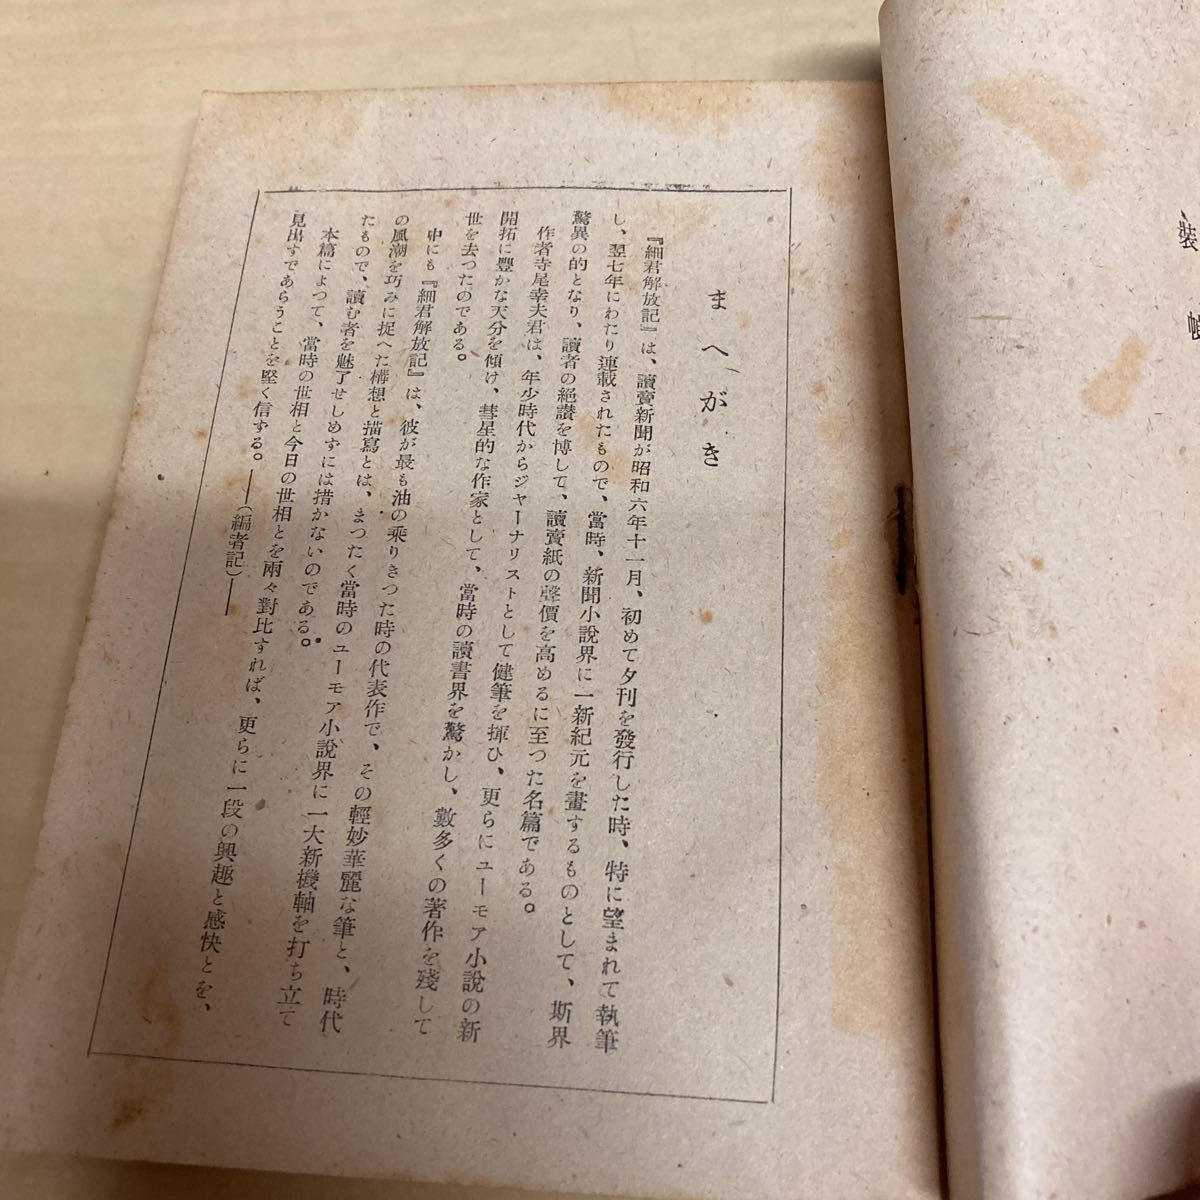 まへがき
『細君解放記』は、讀賣新聞が昭和六年十一月、初めて夕刊を發行した時、特に望まれて執筆
し、翌七年にわたり連載されたもので、當時、新聞小說界に一新紀元を畫するものとして、斯界
驚異の的となり、讀者の絶讃を博して、讀賣紙の聲價を高めるに至つた名篇である。
作者寺尾幸夫君は、年少時代からジャーナリストとして健筆を揮ひ、更らにユーモア小說の新
開拓に豊かな天分を傾け、彗星的な作家として、當時の讀書界を驚かし、數多くの著作を殘して
世を去つたのである。
中にも『細君解放記』は、彼が最も油の乘りきつた時の代表作で、その輕妙華麗な筆と、時代
の風潮を巧みに捉へた構想と描寫とは、まつたく當時のユーモア小說界に一大新機軸を打ち立て
たもので、讀む者を魅了せしめずには措かないのである。
本篇によつて、當時の世相と今日の世相とを兩々對比すれば、更らに一段の興趣と感快とを、
見出すであらうことを堅く信ずる。――(編者記)――
裝